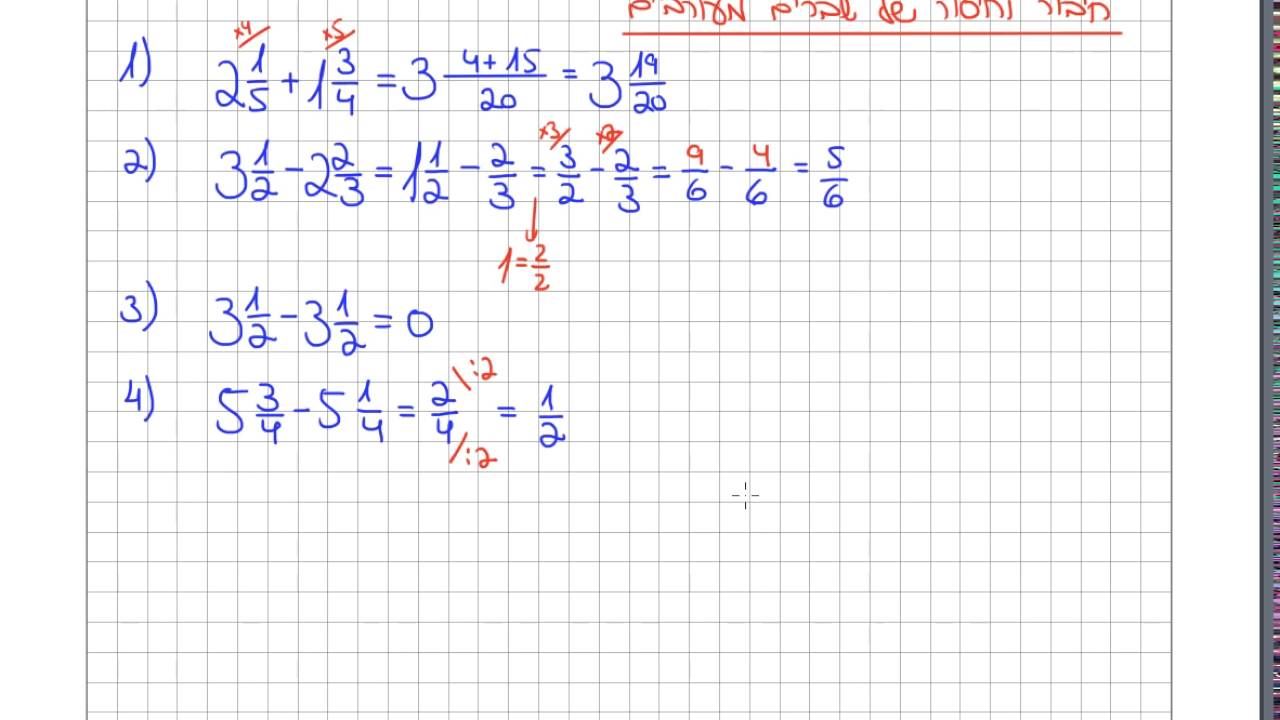 חיבור וחיסור של שברים מעורבים
×4 ×5
1) 2 1/5 + 1 3/4 = 3 (4+15)/20 = 3 19/20
×3/ ×2/
2) 3 1/2 - 2 2/3 = 1 1/2 - 2/3 = 3/2 - 2/3 = 9/6 - 4/6 = 5/6
1 = 2/2
3) 3 1/2 - 3 1/2 = 0
4) 5 3/4 - 5 1/4 = 2/4 \:2 /:2 = 1/2